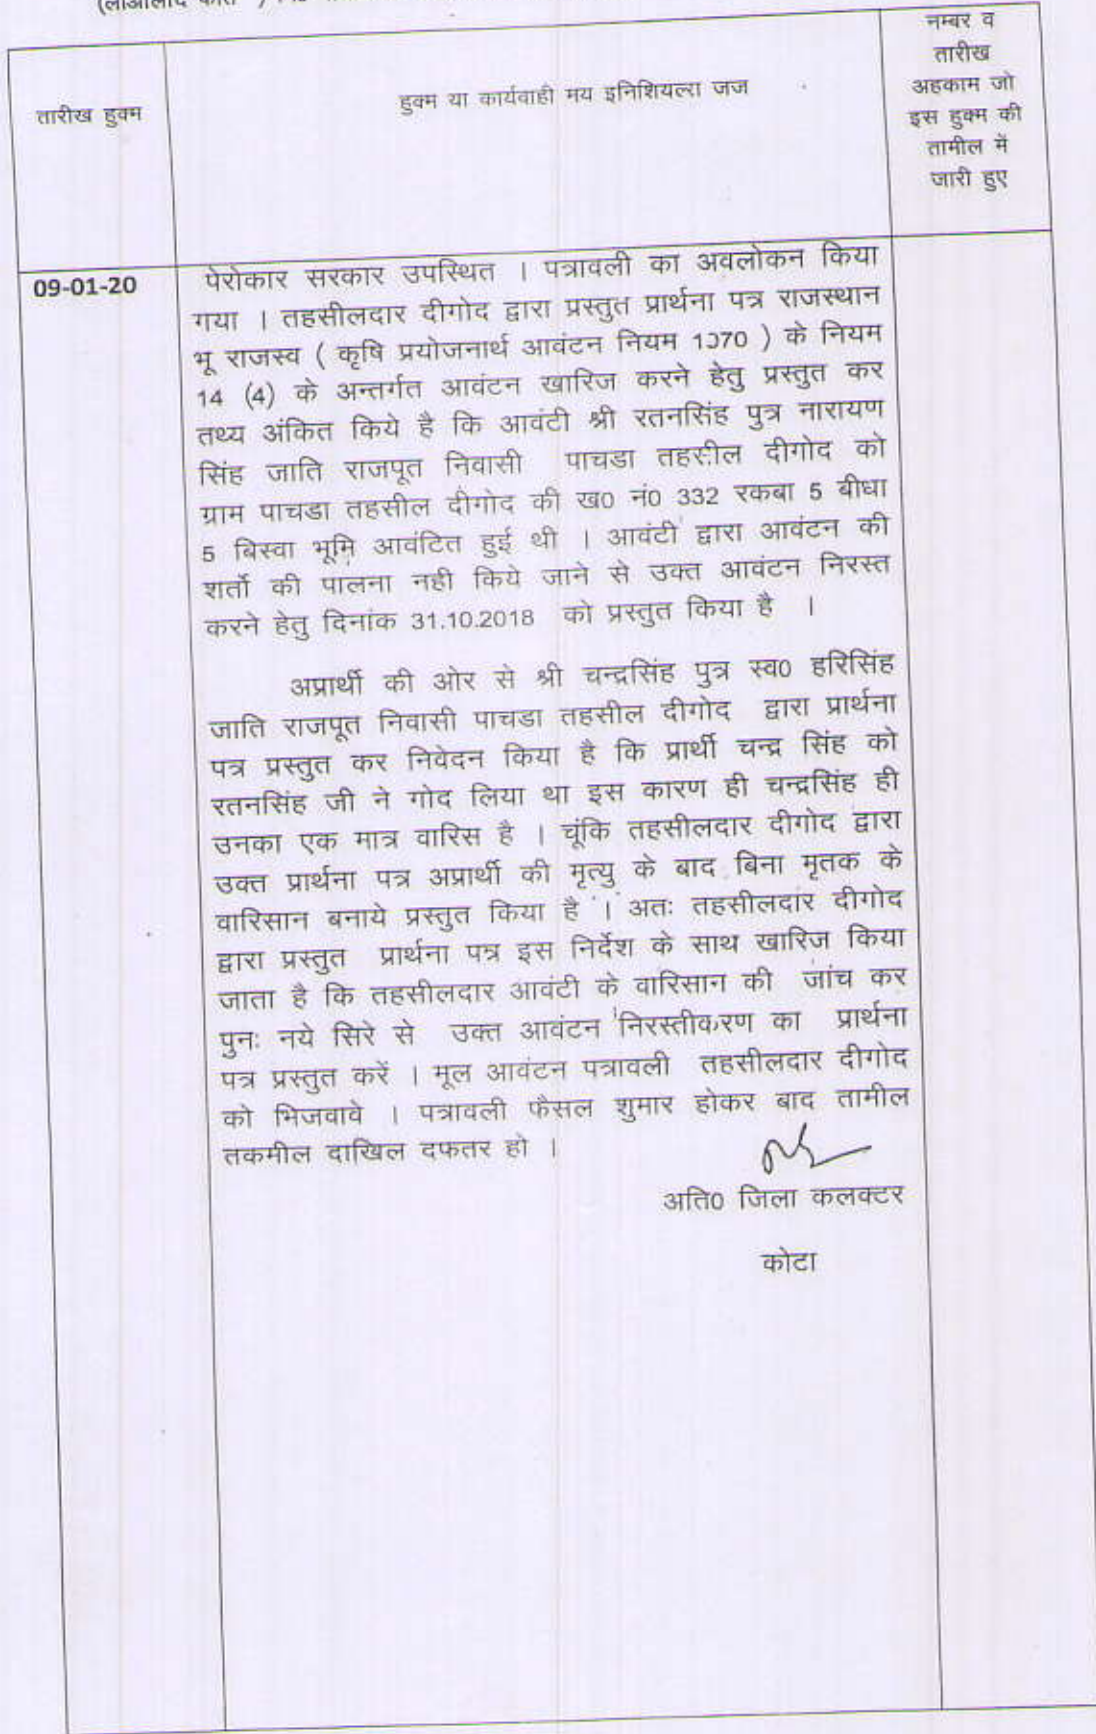 (लाऔलाद फौत )
तारीख हुक्म
हुक्म या कार्यवाही मय इनिशियल्स जज
नम्बर व
तारीख
अहकाम जो
इस हुक्म की
तामील में
जारी हुए
09-01-20
पेरोकार सरकार उपस्थित । पत्रावली का अवलोकन किया
गया । तहसीलदार दीगोद द्वारा प्रस्तुत प्रार्थना पत्र राजस्थान
भू राजस्व ( कृषि प्रयोजनार्थ आवंटन नियम 1970 ) के नियम
14 (4) के अन्तर्गत आवंटन खारिज करने हेतु प्रस्तुत कर
तथ्य अंकित किये है कि आवंटी श्री रतनसिंह पुत्र नारायण
सिंह जाति राजपूत निवासी पाचडा तहसील दीगोद को
ग्राम पाचडा तहसील दीगोद की ख0 नं0 332 रकबा 5 बीघा
5 बिस्वा भूमि आवंटित हुई थी । आवंटी द्वारा आवंटन की
शर्तो की पालना नही किये जाने से उक्त आवंटन निरस्त
करने हेतु दिनांक 31.10.2018 को प्रस्तुत किया है ।
अप्रार्थी की ओर से श्री चन्द्रसिंह पुत्र स्व0 हरिसिंह
जाति राजपूत निवासी पाचडा तहसील दीगोद द्वारा प्रार्थना
पत्र प्रस्तुत कर निवेदन किया है कि प्रार्थी चन्द्र सिंह को
रतनसिंह जी ने गोद लिया था इस कारण ही चन्द्रसिंह ही
उनका एक मात्र वारिस है । चूंकि तहसीलदार दीगोद द्वारा
उक्त प्रार्थना पत्र अप्रार्थी की मृत्यु के बाद बिना मृतक के
वारिसान बनाये प्रस्तुत किया है । अतः तहसीलदार दीगोद
द्वारा प्रस्तुत प्रार्थना पत्र इस निर्देश के साथ खारिज किया
जाता है कि तहसीलदार आवंटी के वारिसान की जांच कर
पुनः नये सिरे से उक्त आवंटन निरस्तीकरण का प्रार्थना
पत्र प्रस्तुत करें । मूल आवंटन पत्रावली तहसीलदार दीगोद
को भिजवावे । पत्रावली फैसल शुमार होकर बाद तामील
तकमील दाखिल दफतर हो ।
अति0 जिला कलक्टर
कोटा